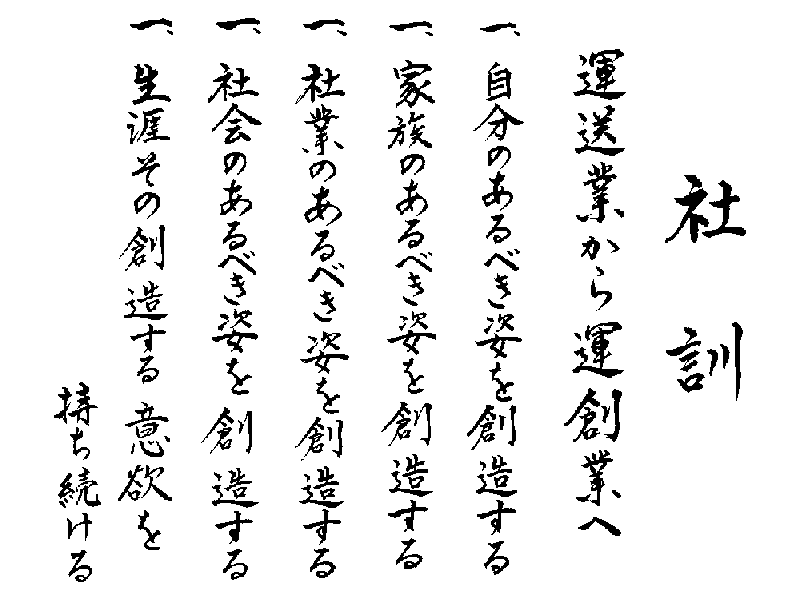 社訓
運送業から運創業へ
一、自分のあるべき姿を創造する
一、家族のあるべき姿を創造する
一、社業のあるべき姿を創造する
一、社会のあるべき姿を創造する
一、生涯その創造する意欲を
持ち続ける